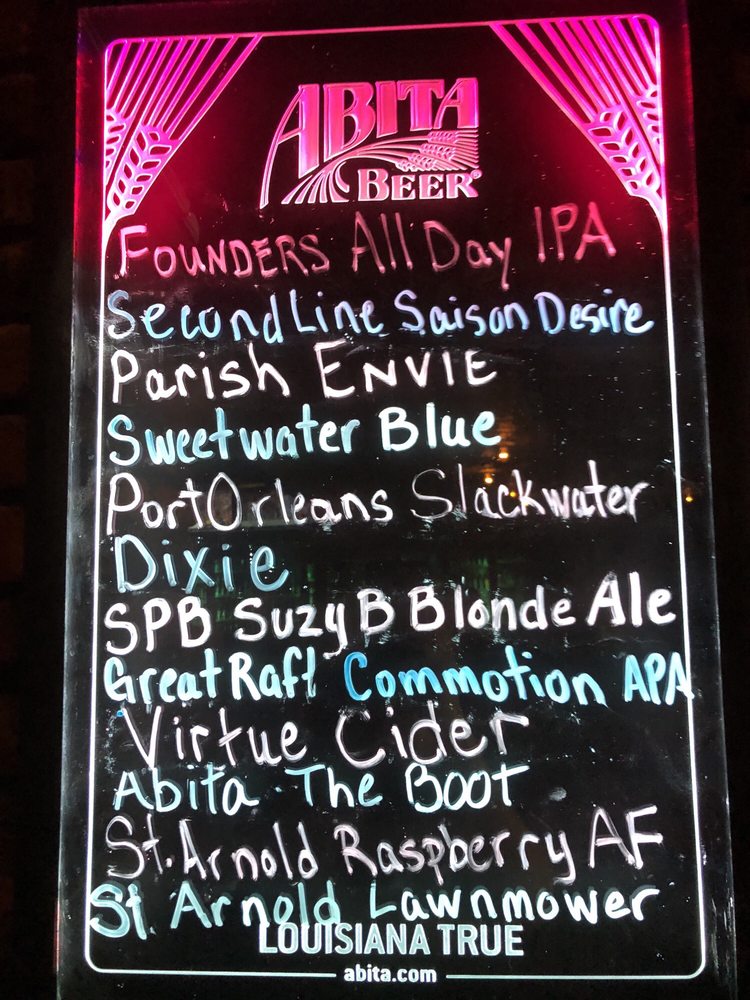 ABITA
BEER®
FOUNDERS All Day IPA
Second Line Saison Desire
Parish ENVIE
Sweetwater Blue
Port Orleans Slackwater
Dixie
SPB Suzy B Blonde Ale
Great Raft Commotion APA
Virtue Cider
Abita The Boot
St. Arnold Raspberry AF
St. Arnold Lawnmower
LOUISIANA TRUE
abita.com